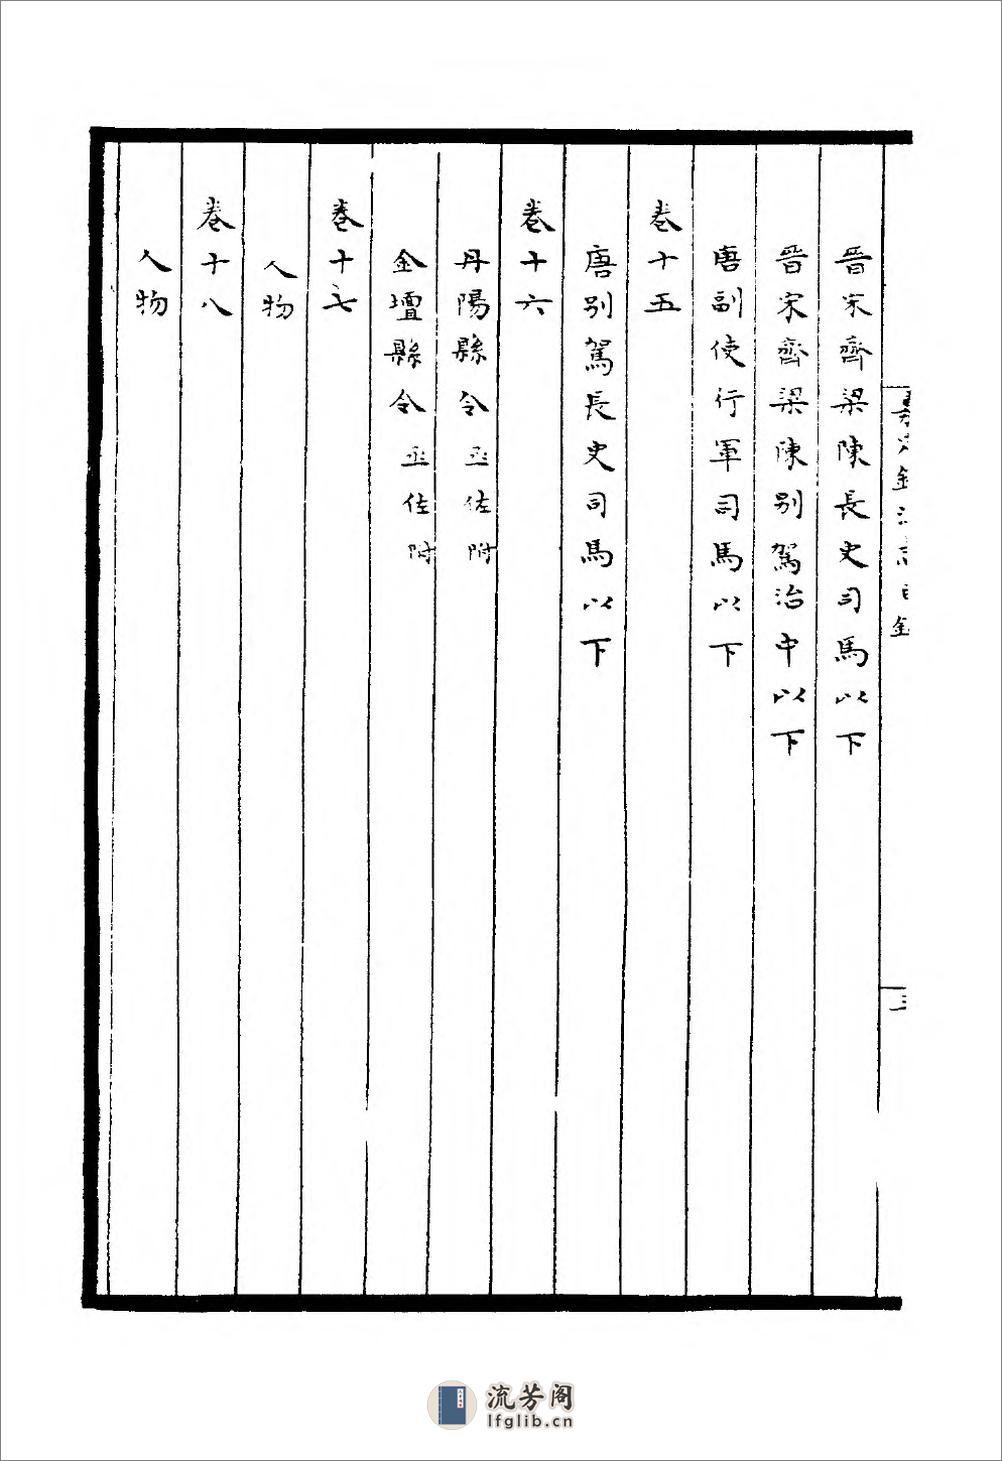 晋宋齊梁陳長史司馬以下
晋宋齊梁陳别駕治中以下
唐副使行軍司馬以下
卷十五
唐别駕長史司馬以下
卷十六
丹陽縣令丞佐附
金壇縣令丞佐附
卷十七
人物
卷十八
人物
流芳阁
lfglib.cn